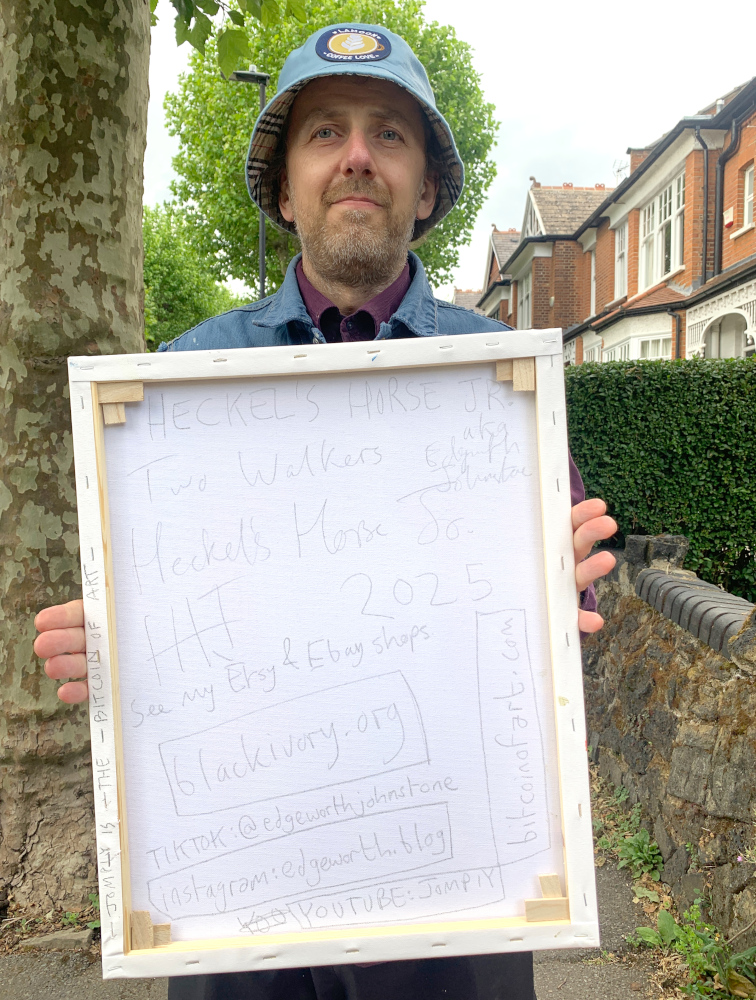 LAMOON
COFFEE LOVE
HECKEL'S HORSE JR.
aka
Two Walkers
Edgeworth
Johnstone
Heckel's Horse Jr.
HHJ
2025
See my Etsy & Ebay shops
blackivory.org
TIKTOK: @edgeworthjohnstone
instagram: edgeworth.blog
YOUTUBE: JOMPIY
bitcoinofart.com
- JOMPIY IS - THE - BITCOIN OF ART -